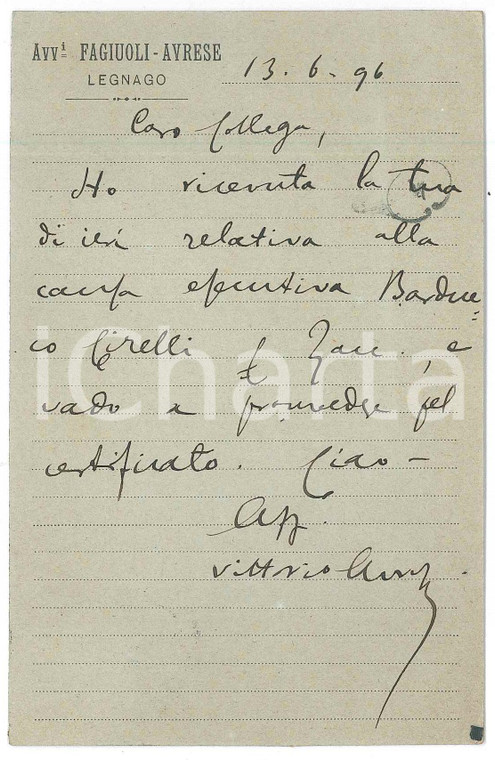 Avvi FAGIUOLI - AVRESE
LEGNAGO
13. 6. 96
Caro Collega,
Ho ricevuta la tua
di ieri relativa alla
causa esecutiva Bardue=
co Cirelli e
vado a provvedere pel
certificato. Ciao -
Aff.
Vittorio Avrese
iCharta